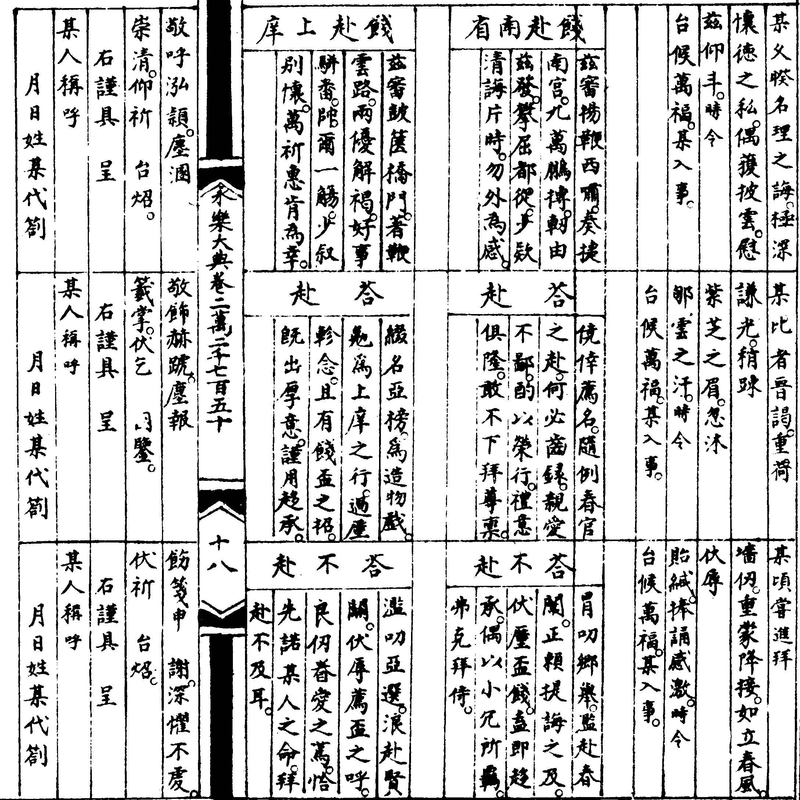 某父暌名理之誨極深
懷德之私偶獲披雲慰
茲仰斗時令
台候萬福某入事
餞赴南宮有
茲審揚鞭西嘯奏捷
南宮九萬鵬摶軔由
茲發攀屈都從少款
清誨片時勿外為感
餞赴上庠
茲審鼓篋橋門著鞭
雲路兩優解褐好事
駢臻陬爾一觴少叙
别懷萬祈惠肯為幸
敬呼泓頴塵溷
崇清仰祈 台炤
右謹具 呈
某人稱呼
月日姓某代劄
永樂大典卷二萬二千七百五十
某比者晉謁重荷
謙光稍踈
紫芝之眉忽沐
郇雲之汗時令
台候萬福某入事
荅 赴
僥倖薦名隨例春官
之赴何必齒録親愛
不鄙酌以榮行禮意
俱隆敢不下拜尊稟
荅 赴
綴名亞榜為造物戲
勉為上庠之行過塵
軫念且有餞盃之招
既出厚意謹用趍承
敬飾赫蹏塵報
籖掌伏乞 鑒
右謹具 呈
某人稱呼
月日姓某代劄
十八
某頃嘗進拜
墻仭重蒙降接如立春風
伏辱
貽緘捧誦感激時令
台候萬福某入事
荅不赴
冒叨鄉舉濫赴春
闈正賴提誨之及
伏蒙盃餞益即趍
承偶以小冗所羈
弗克拜侍
荅不赴
濫叨亞選浪赴賢
關伏辱薦盃之呼
良仭眷愛之篤恰
先諾某人之命拜
赴不及耳
飭箋申 謝深懼不虔
伏祈 台炤
右謹具 呈
某人稱呼
月日姓某代劄